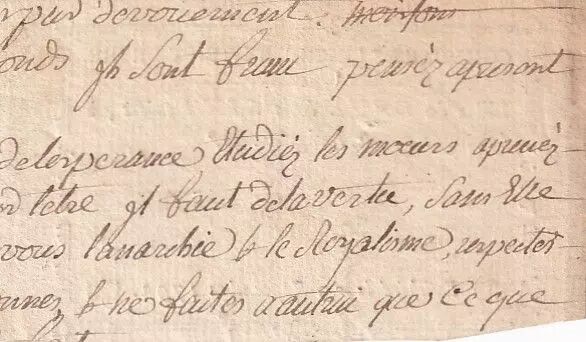 par devouement.
onds jls sont franc pensez apresent
de lesperance Etudiez les mœurs aprenez-
letre jl faut de la vertu, sans Elle
vous lanarchie & le Royalisme, respecter
onnes, & ne faites a autrui que Ce que